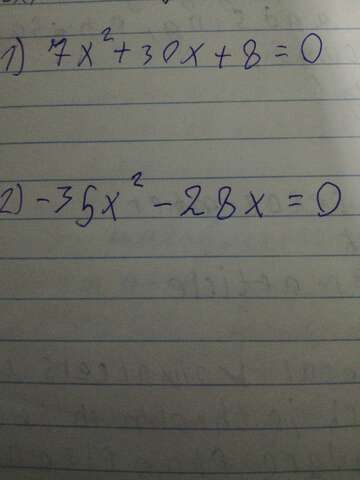 1) 7x² + 30x + 8 = 0
2) -35x² - 28x = 0